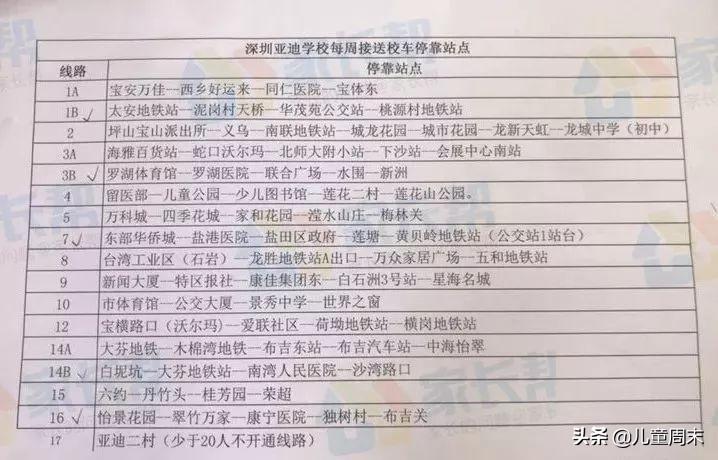 深圳亚迪学校每周接送校车停靠站点
线路 停靠站点
1A 宝安万佳—西乡好运来—同仁医院—宝体东
1B ✓ 太安地铁站—泥岗村天桥—华茂苑公交站—桃源村地铁站
2 坪山宝山派出所—义乌—南联地铁站—城龙花园—城市花园—龙新天虹—龙城中学（初中）
3A 海雅百货站—蛇口沃尔玛—北师大附小站—下沙站—会展中心南站
3B ✓ 罗湖体育馆—罗湖医院—联合广场—水围—新洲
4 留医部—儿童公园—少儿图书馆—莲花二村—莲花山公园。
5 万科城—四季花城—家和花园—滢水山庄—梅林关
7 ✓ 东部华侨城—盐港医院—盐田区政府—莲塘—黄贝岭地铁站（公交站1站台）
8 台湾工业区（石岩）—龙胜地铁站A出口—万众家居广场—五和地铁站
9 新闻大厦—特区报社—康佳集团东—白石洲3号站—星海名城
10 市体育馆—公交大厦—景秀中学—世界之窗
12 宝横路口（沃尔玛)—爱联社区—荷坳地铁站—横岗地铁站
14A 大芬地铁—木棉湾地铁—布吉东站—布吉汽车站—中海怡翠
14B ✓ 白坭坑—大芬地铁站—南湾人民医院—沙湾路口
15 六约—丹竹头—桂芳园—荣超
16 ✓ 怡景花园—翠竹万家—康宁医院—独树村—布吉关
17 亚迪二村（少于20人不开通线路）
头条 @儿童周末
家长帮